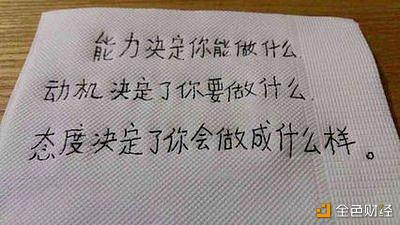 能力决定你能做什么.
动机决定了你要做什么.
态度决定了你会做成什么样。
金色财经